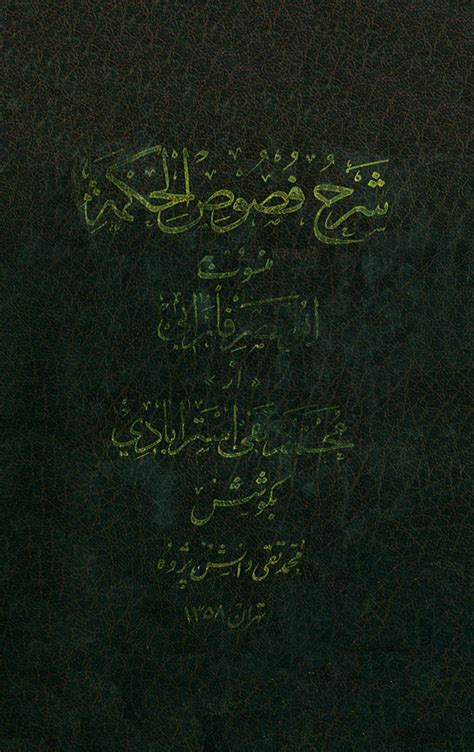 شرح فصوص الحکمة
منسوب
ابی نصر فارابی
«از»
محمد تقی استرابادی
بکوشش
محمد تقی دانش پژوه
تهران ۱۳۵۸